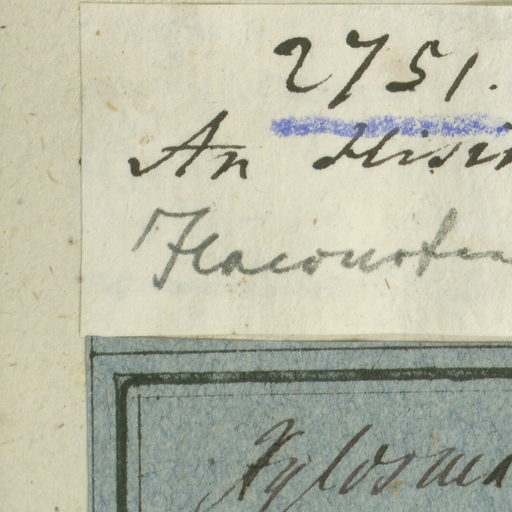 2751.
An Hisin
Flacourtia
Xylosma